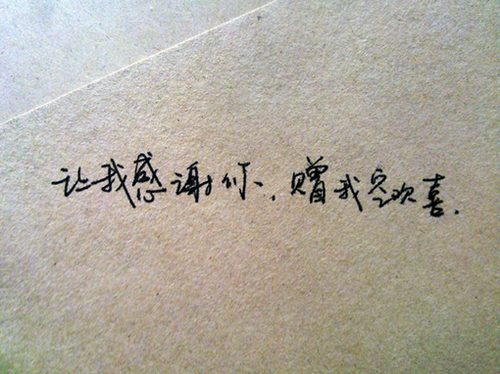 让我感谢你,赠我空欢喜.